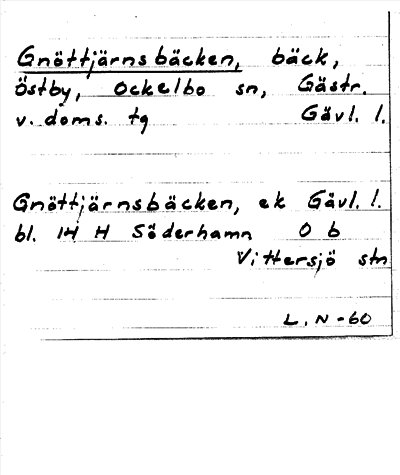 Gnöttjärnsbäcken, bäck,
Östby, Ockelbo sn, Gästr.
v. doms. tg Gävl. l.
Gnöttjärnsbäcken, ek Gävl. l.
bl. 14 H Söderhamn 0 b
Vittersjö stn
L. N -60